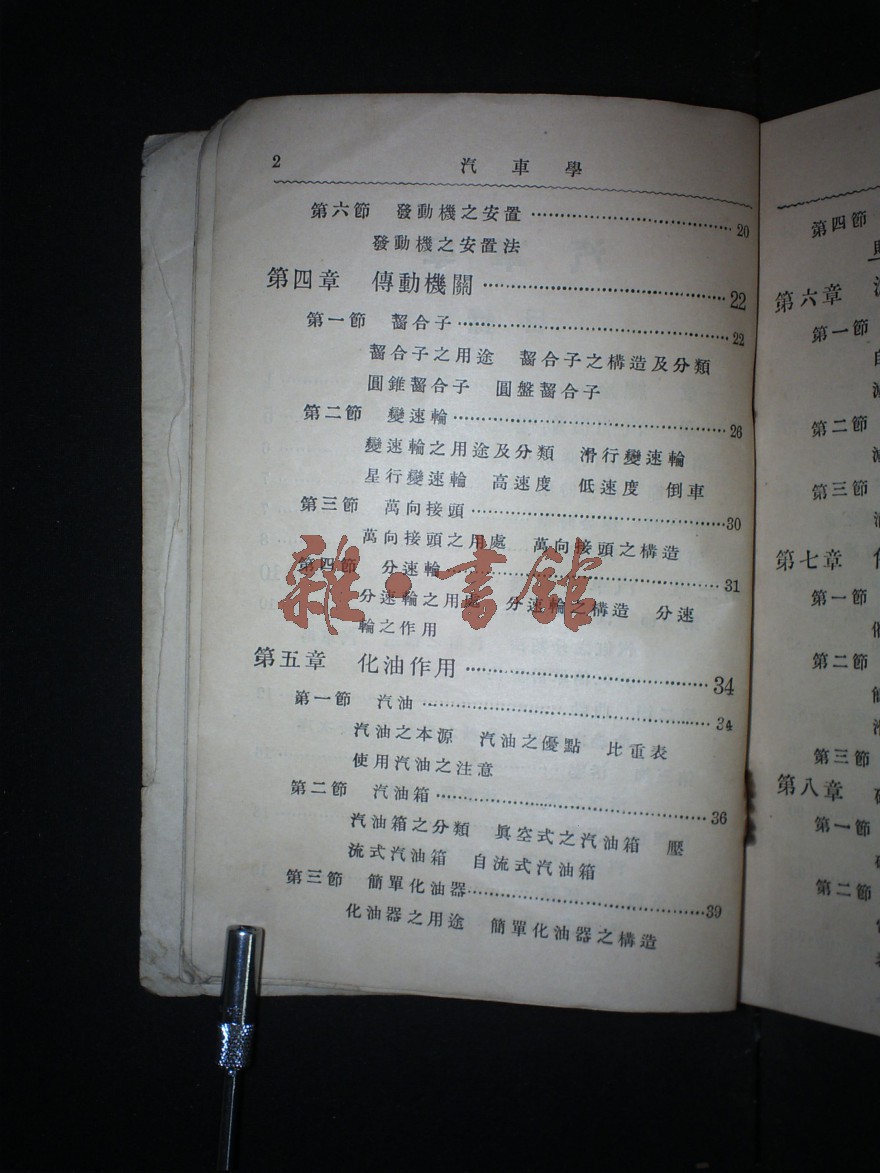 2
汽車學
第六節 發動機之安置 20
發動機之安置法
第四章 傳動機關 22
第一節 齧合子 22
齧合子之用途 齧合子之構造及分類
圓錐齧合子 圓盤齧合子
第二節 變速輪 26
變速輪之用途及分類 滑行變速輪
星行變速輪 高速度 低速度 倒車
第三節 萬向接頭 30
萬向接頭之用處 萬向接頭之構造
第四節 分速輪 31
分速輪之用處 分速輪之構造 分速
輪之作用
第五章 化油作用 34
第一節 汽油 34
汽油之本源 汽油之優點 比重表
使用汽油之注意
第二節 汽油箱 36
汽油箱之分類 眞空式之汽油箱 壓
流式汽油箱 自流式汽油箱
第三節 簡單化油器 39
化油器之用途 簡單化油器之構造
雜·書館
第四節
第六章
第一節
第二節
第三節
第七章
第一節
第二節
第三節
第八章
第一節
第二節